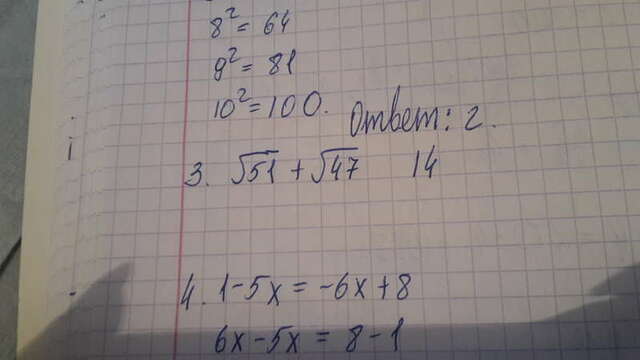 8² = 64
9² = 81
10² = 100. Ответ: 2.
3. √51 + √47 14
4. 1-5x = -6x+8
6x-5x = 8-1